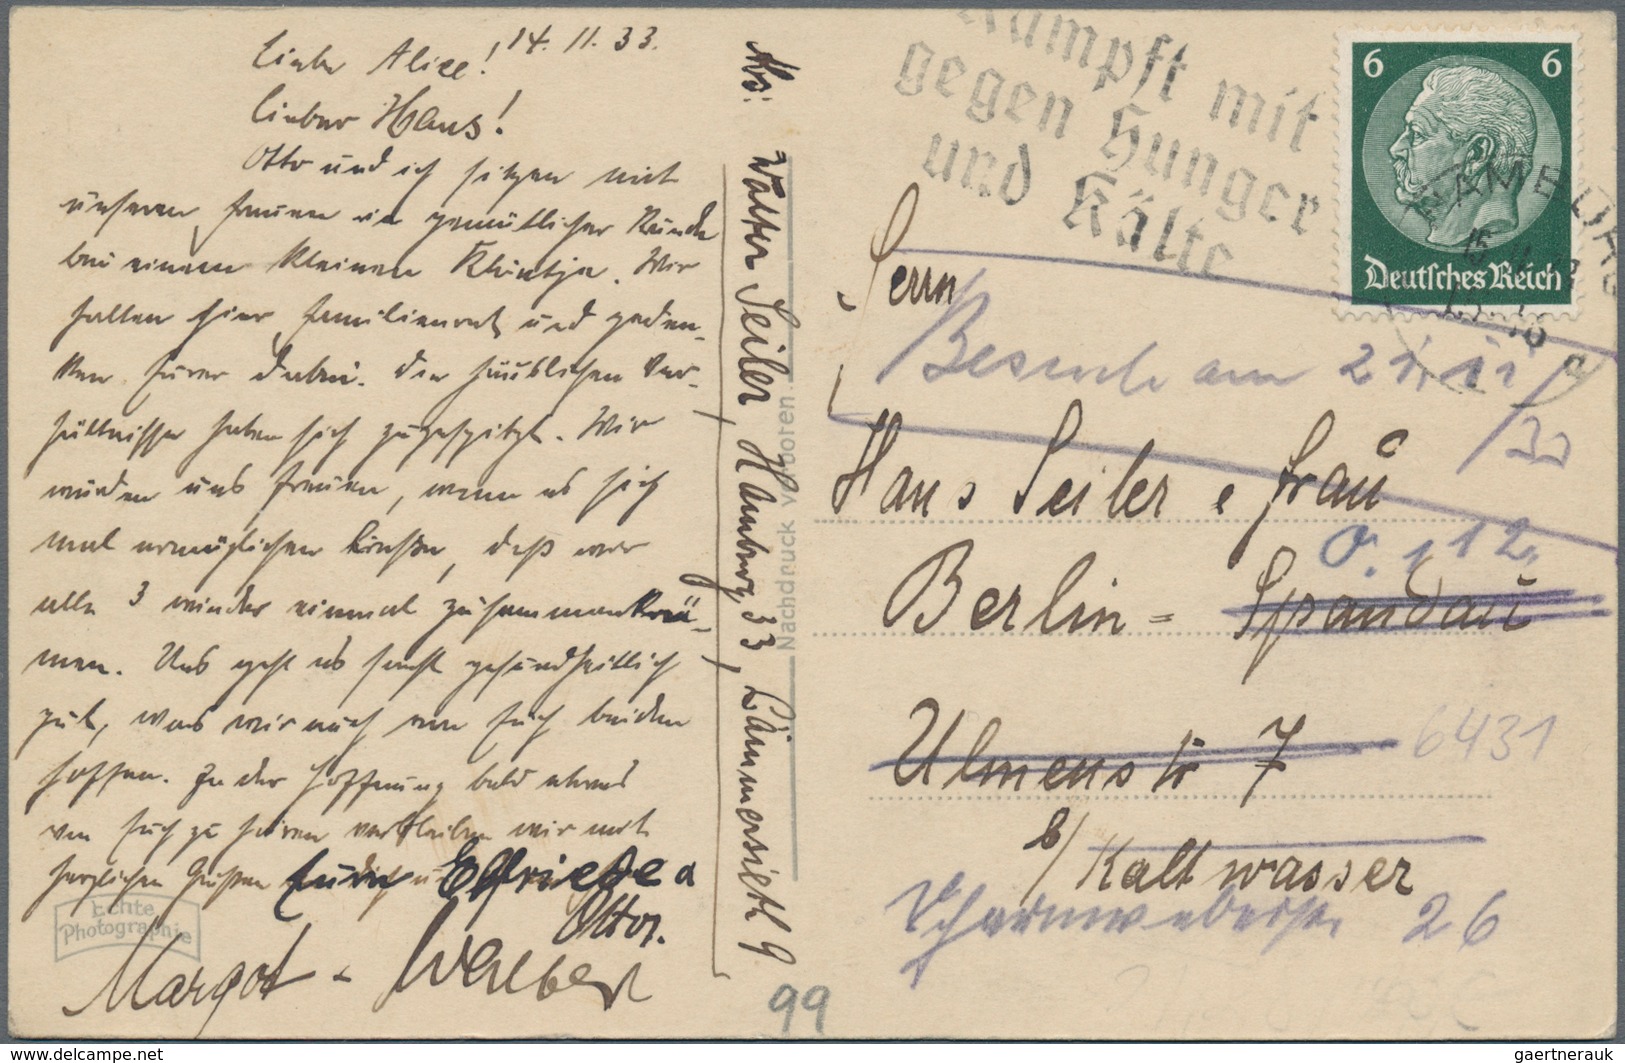 14. 11. 33.
Liebe Alice!
Lieber Hans!
Otto und ich sitzen mit
unseren Frauen in gemütlicher Runde
bei einem kleinen Klüntje. Wir
halten hier Familienrat und geden-
ken Eurer dabei. Die häuslichen Ver-
hältnisse haben sich zugespitzt. Wir
würden uns freuen, wenn es sich
mal ermöglichen ließe, daß wir
alle 3 wieder einmal zusammenkom-
men. Uns geht es sonst gesundheitlich
gut, was wir auch von Euch beiden
hoffen. In der Hoffnung bald etwas
von Euch zu hören verbleiben wir mit
herzlichen Grüßen Elfriede
Otto.
Margot
Echte
Photographie
Abs: Walter Seiler, Hamburg 33, Lämmersieth 9
Nachdruck verboten
Kämpft mit
gegen Hunger
und Kälte
6 6
Deutsches Reich
HAMBURG
Herrn
Besuch am
Hans Seiler & Frau
O. 112
Berlin = Spandau
Ulmenstr 7
6431
b/ Kaltwasser
Scharnweberstr 26
99
ebay-delcampe.net
gaertnerauk